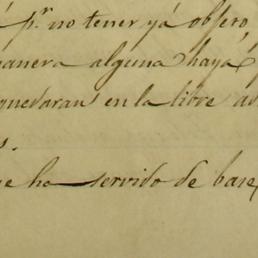 pr. no tener yá obgeto,
manera alguna haya
quedaran en la libre ad
s.
ue ha servido de base,